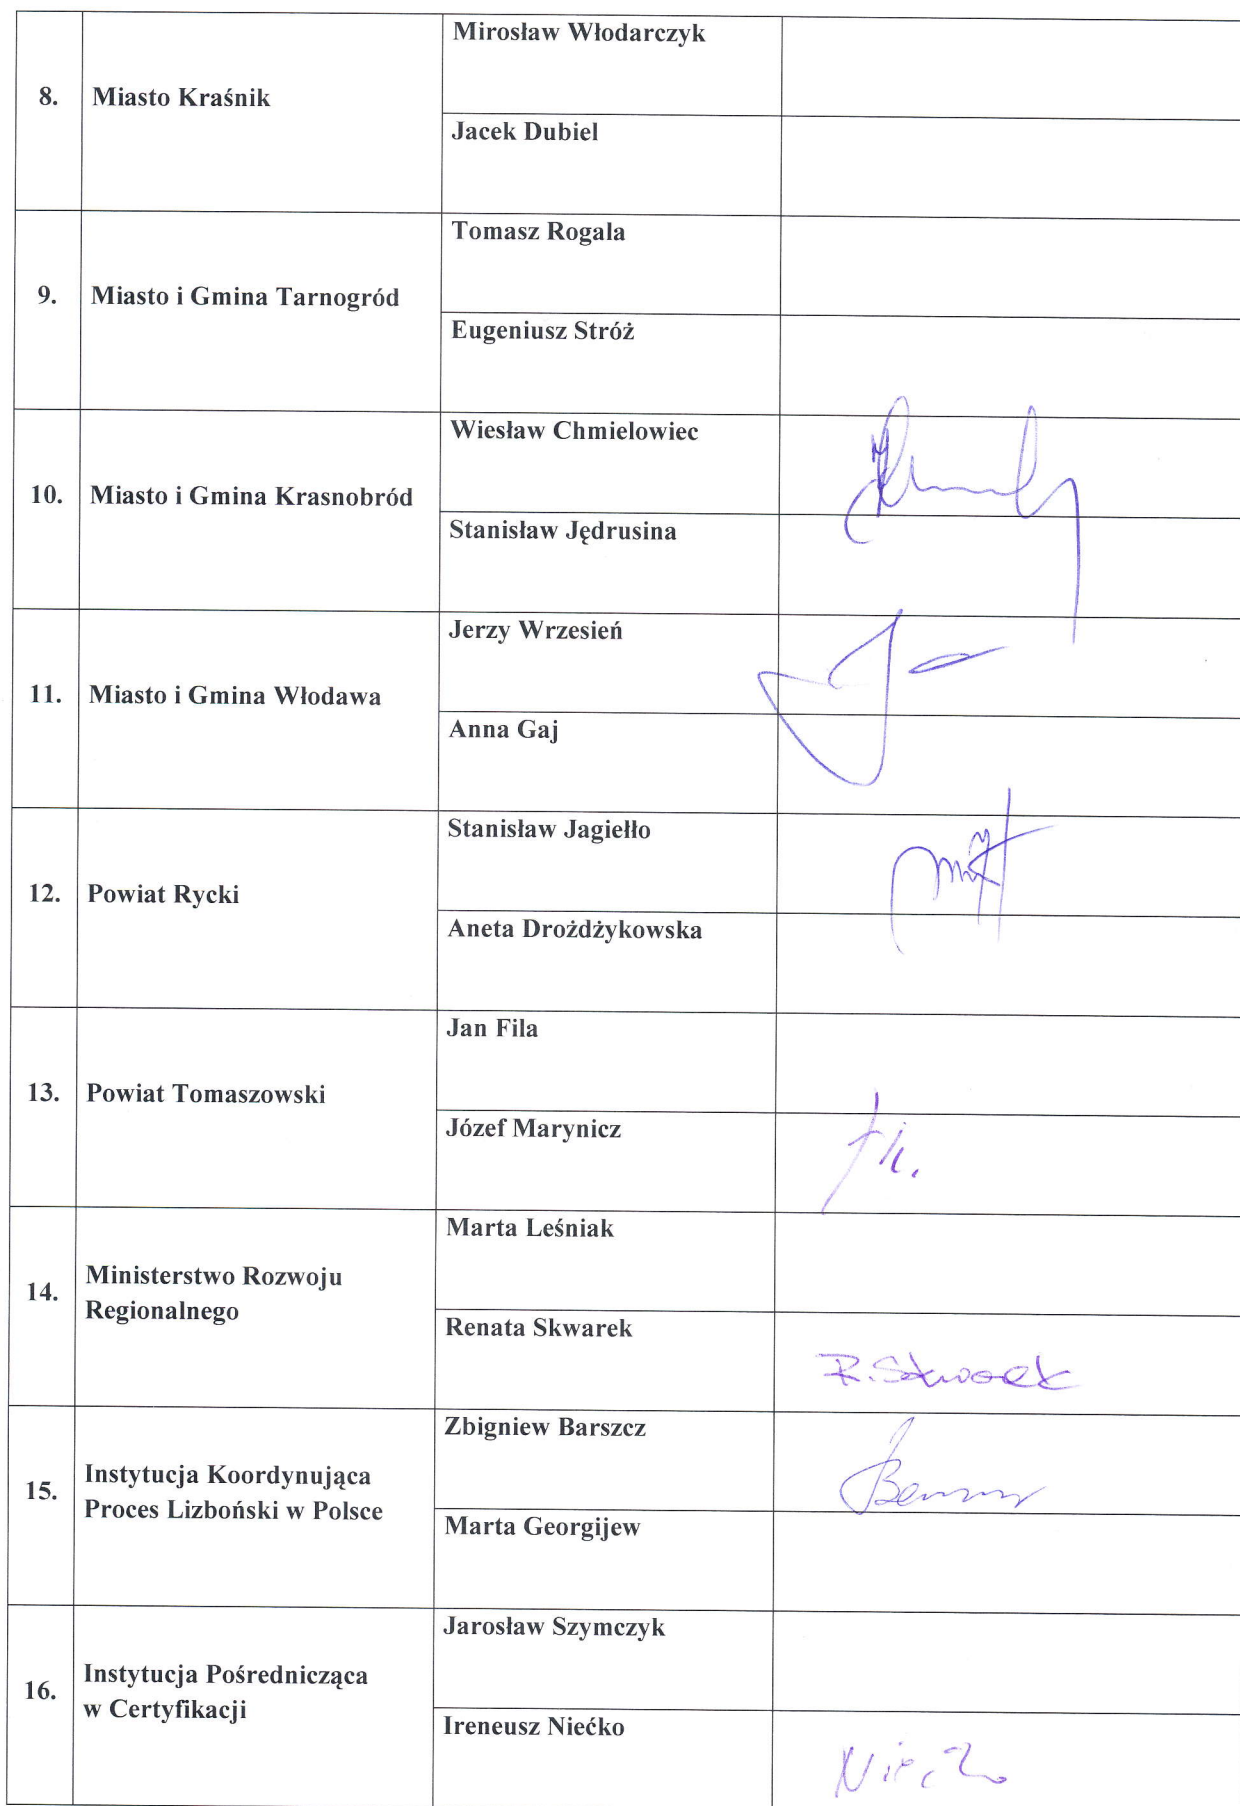 8.
Miasto Kraśnik
Mirosław Włodarczyk
Jacek Dubiel
9.
Miasto i Gmina Tarnogród
Tomasz Rogala
Eugeniusz Stróż
10.
Miasto i Gmina Krasnobród
Wiesław Chmielowiec
Stanisław Jędrusina
11.
Miasto i Gmina Włodawa
Jerzy Wrzesień
Anna Gaj
12.
Powiat Rycki
Stanisław Jagiełło
Aneta Drożdżykowska
13.
Powiat Tomaszowski
Jan Fila
Józef Marynicz
14.
Ministerstwo Rozwoju
Regionalnego
Marta Leśniak
Renata Skwarek
R. Skwarek
15.
Instytucja Koordynująca
Proces Lizboński w Polsce
Zbigniew Barszcz
Marta Georgijew
16.
Instytucja Pośrednicząca
w Certyfikacji
Jarosław Szymczyk
Ireneusz Niećko